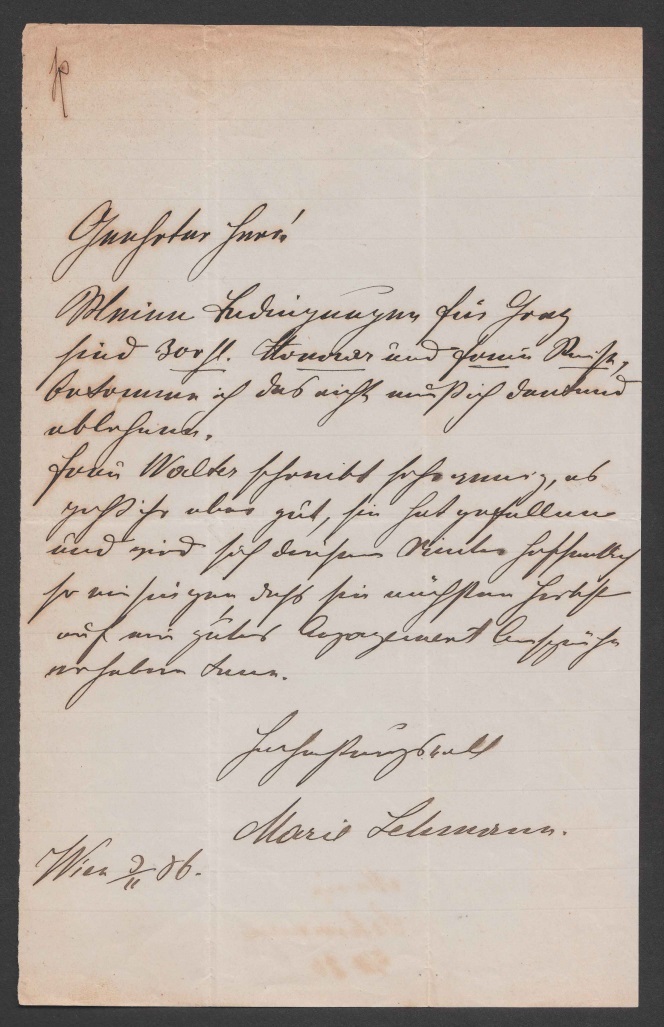 Geehrter Herr!
Meine Bedingungen für Graz
sind 300 fl. Honorar und freie Reise,
bekomme ich das nicht muß ich dankend
ablehnen.
Frau Walter schreibt sehr wenig, es
geht ihr aber gut, sie hat gefallen
und wird sich diesen Winter hoffentlich
so einsingen, daß sie nächsten Herbst
auf ein gutes Engagement Ansprüche
erheben kann.
Hochachtungsvoll
Marie Lehmann.
Wien 9/11 86.